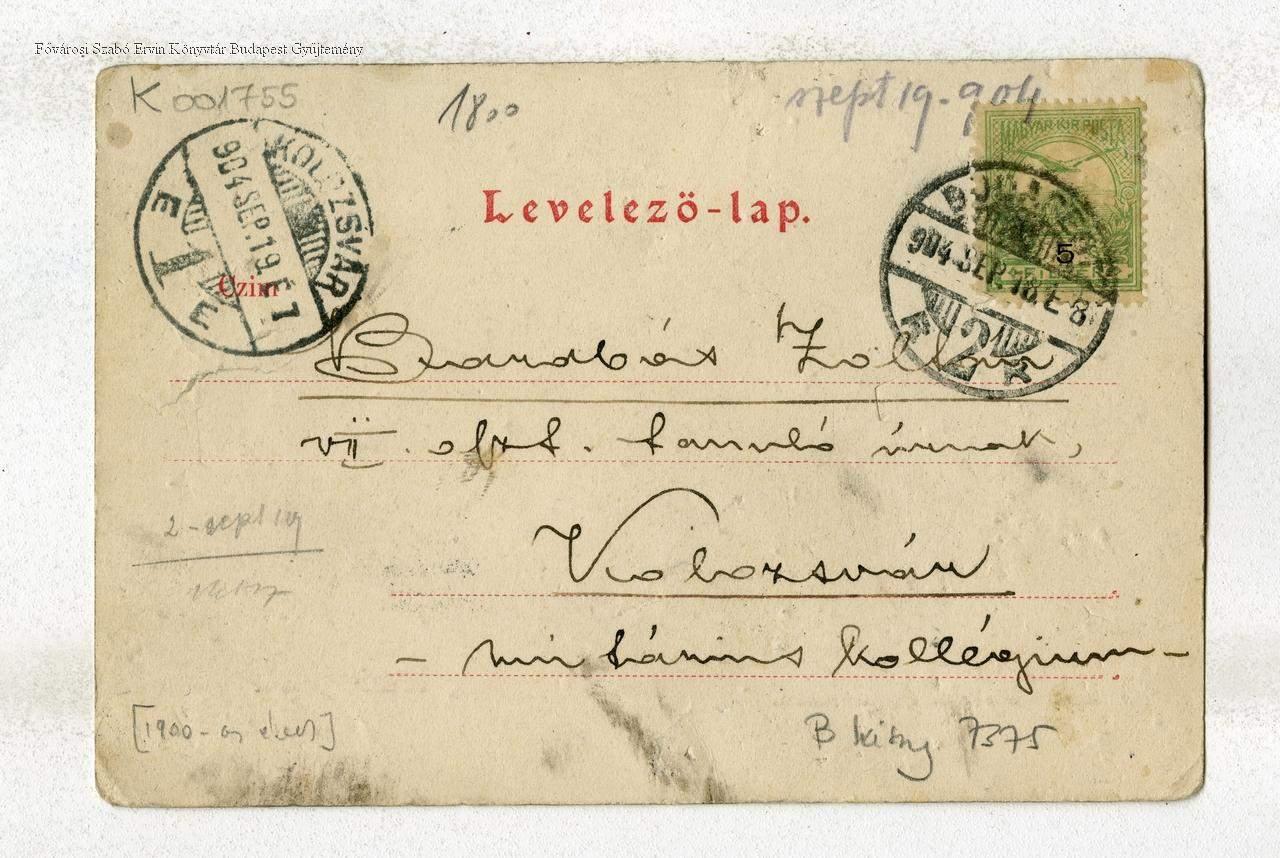 Fővárosi Szabó Ervin Könyvtár Budapest Gyűjtemény
K 001755
1800
szept 19. 904
MAGYAR KIR. POSTA
5
KOLOZSVÁR
904 SEP. 19. E 7
Levelező-lap.
BUDAPEST
904 SEP 18. E 8
2
Czim
Zoltán
VII. oszt. tanuló úrnak,
2 - sept 19
Kolozsvár
- unitárius kollégium -
[1900-as évek]
B 7375